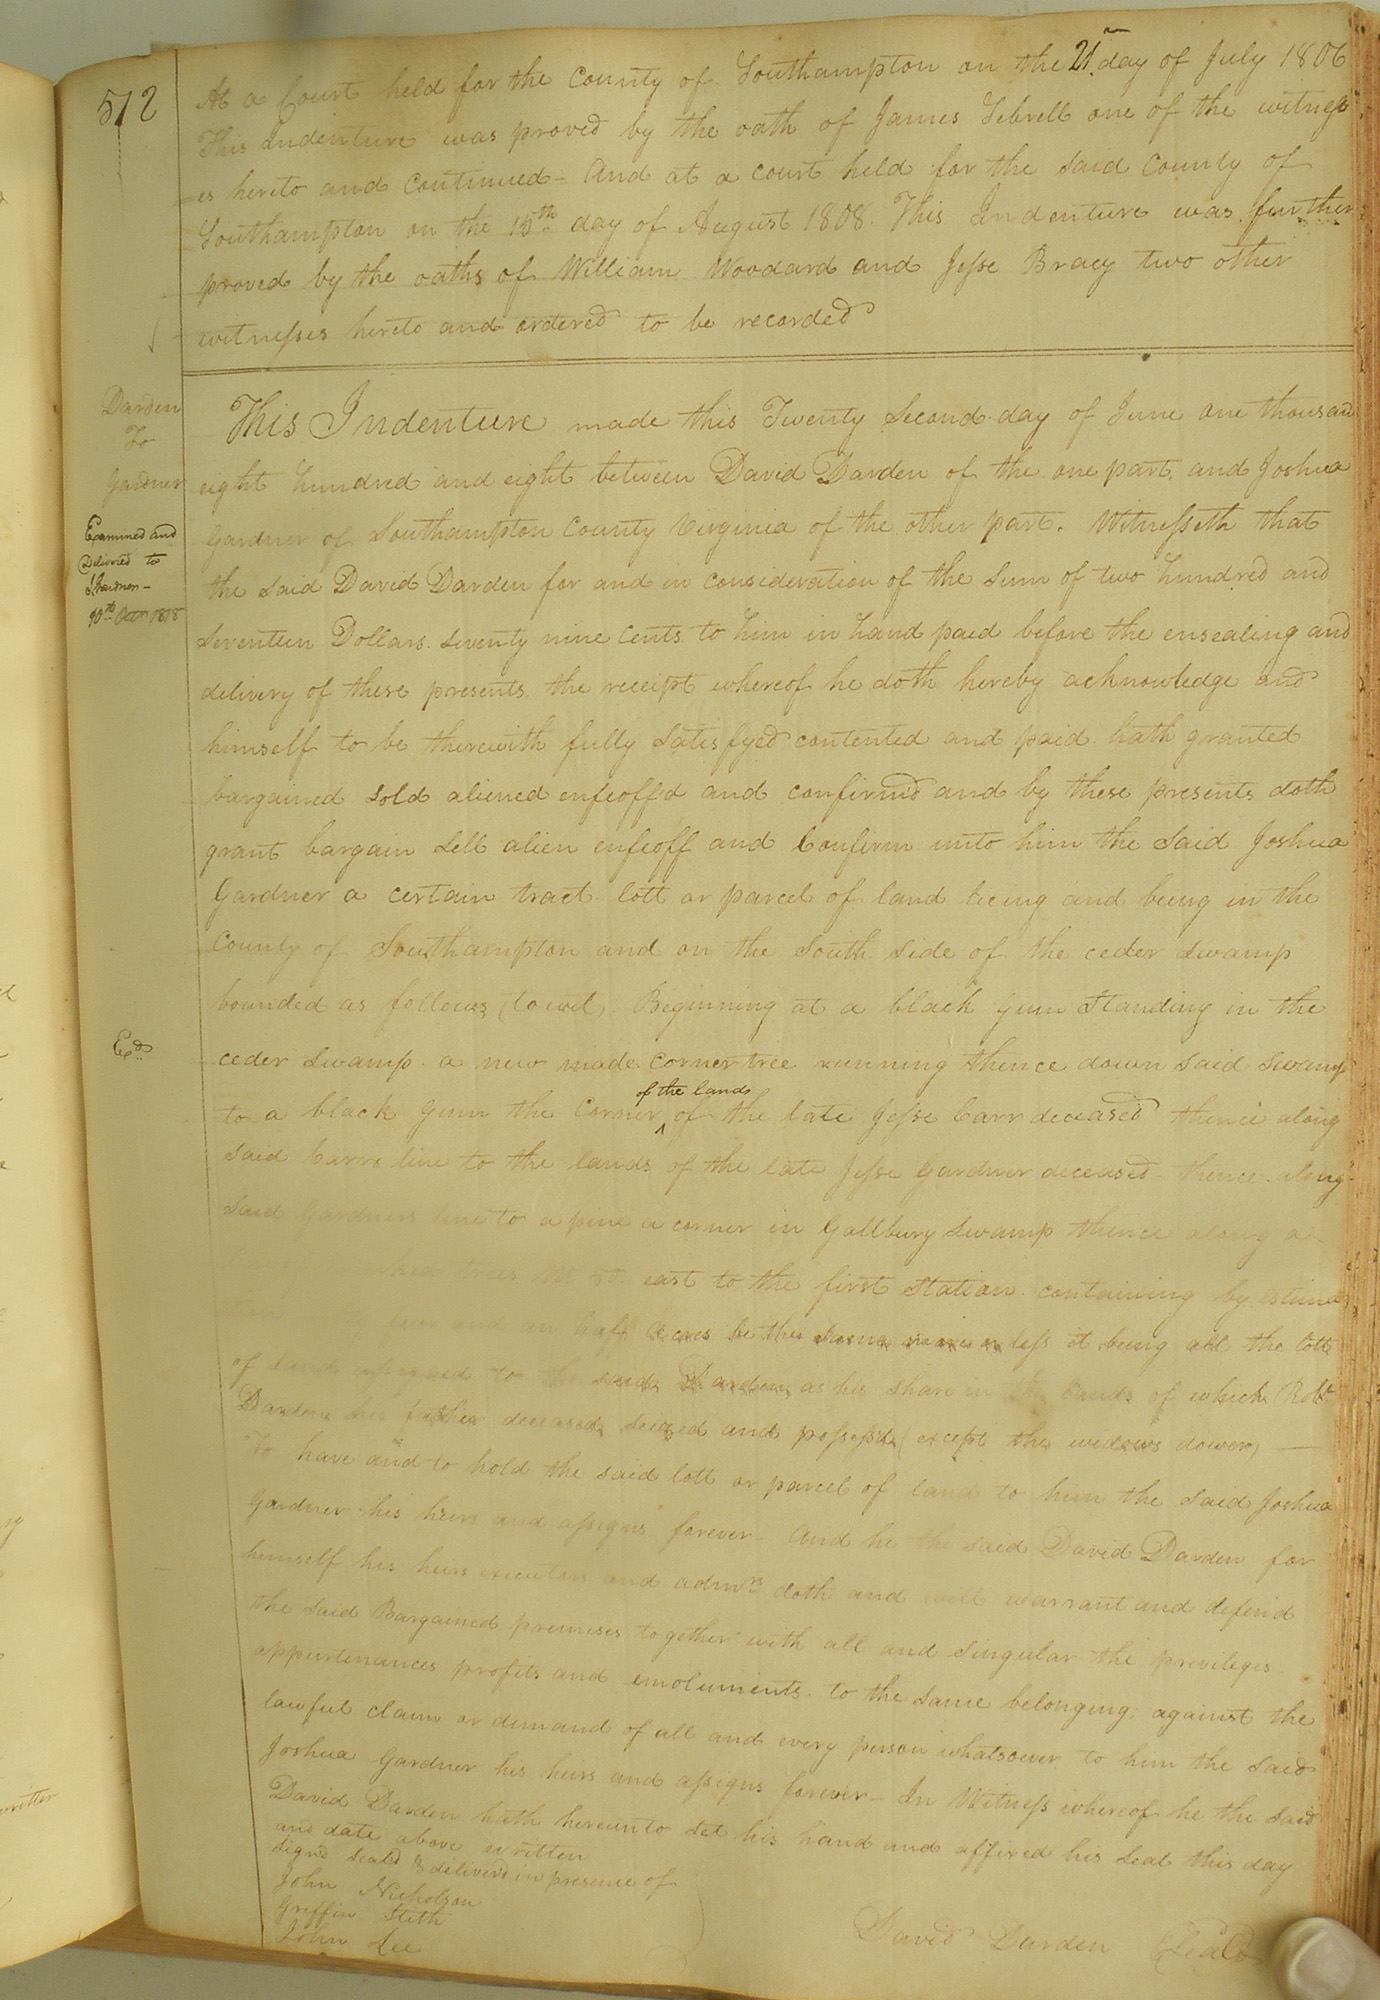 512
At a Court held for the County of Southampton on the 21st day of July 1806
This Indenture was proved by the oath of James Sebrell one of the witness
=es hereto and Continued - And at a court held for the said County of
Southampton on the 15th day of August 1808. This Indenture was further
proved by the oaths of William Woodard and Jesse Bracy two other
witnesses hereto and ordered to be recorded
Darden
To
Gardner
Examined and
Delivered to
10th 1818
Exd
This Indenture made this Twenty Second day of June one thousand
eight hundred and eight between David Darden of the one part, and Joshua
Gardner of Southampton County Virginia of the other part. Witnesseth that
the said David Darden for and in consideration of the Sum of two hundred and
Seventeen Dollars Seventy nine Cents to him in hand paid before the ensealing and
delivery of these presents the receipt whereof he doth hereby acknowledge and
himself to be therewith fully Satisfyed contented and paid hath granted
bargained sold aliened enfeoff'd and confirm'd and by these presents doth
grant bargain sell alien enfeoff and Confirm unto him the said Joshua
Gardner a certain tract lott or parcel of land lieing and being in the
County of Southampton and on the South Side of the ceder Swamp
bounded as follows (towit) Beginning at a black gum Standing in the
ceder Swamp a new made corner tree running thence down said Swamp
to a black Gum the Corner ^ of the lands of the late Jesse Carr deceased thence along
said Carrs line to the lands of the late Jesse Gardner deceased thence along
said Gardners line to a pine a corner in Gallbury Swamp thence along a
trees east to the first Station containing by estima
four and an half Acres be the same more or less it being all the lott
of land to the said Darden as his share in the lands of which Robt
Darden his father deceased, seized and possess'd (except the widows dower)
To have and to hold the said lott or parcel of land to him the said Joshua
Gardner his heirs and assigns forever - And he the said David Darden for
himself his heirs executors and admrs doth and will warrant and defend
the said Bargained premises together with all and Singular the privileges
appurtenances profits and emoluments to the same belonging; against the
lawful claim or demand of all and every person whatsoever to him the said
Joshua Gardner his heirs and assigns forever - In Witness whereof he the said
David Darden hath hereunto set his hand and affixed his Seal this day
and date above written
Sign'd Seal'd & deliver'd in presence of
John Nicholson
Griffin Stith
John Lee
David Darden (Seal)